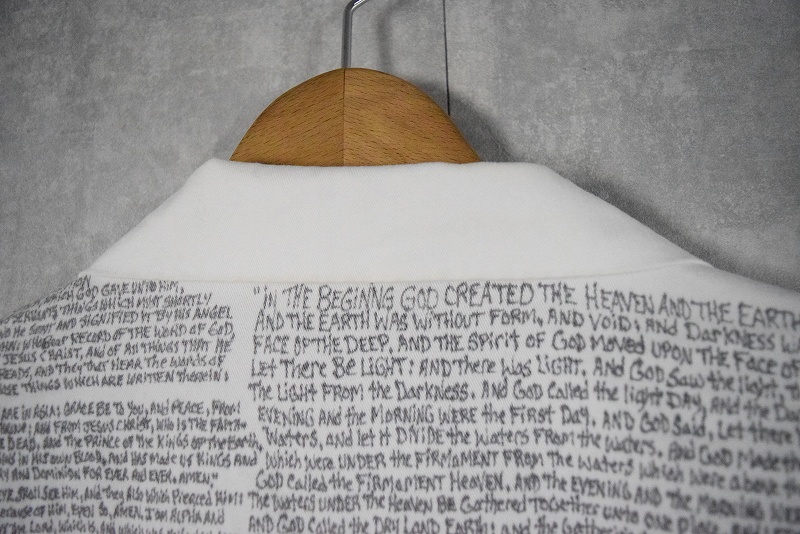 WHICH GOD GAVE UNTO HIM,
SERVANTS THINGS WHICH MUST SHORTLY
HE SENT AND SIGNIFIED IT BY HIS ANGEL
WHO BEAR RECORD OF THE WORD OF GOD,
JESUS CHRIST, AND OF ALL THINGS THAT HE
READS, AND THEY THAT HEAR THE WORDS OF
THOSE THINGS WHICH ARE WRITTEN THEREIN:
ARE IN ASIA: GRACE BE TO YOU, AND PEACE, FROM
AND FROM JESUS CHRIST, WHO IS THE FAITH-
DEAD, AND THE PRINCE OF THE KINGS OF THE EARTH,
SINS IN HIS OWN BLOOD, AND HAS MADE US KINGS AND
AND DOMINION FOR EVER AND EVER. AMEN."
EYE SHALL SEE HIM, AND they Also which Pierced HIM:
because OF HIM, EVEN SO, AMEN. I AM ALPHA AND
the Lord, which is, And which was
"IN THE BEGINNG GOD CREATED THE HEAVEN AND THE EARTH
AND THE EARTH WAS WITHOUT FORM, AND VOID; AND DARKNESS
FACE OF THE DEEP. AND THE SPIRIT OF GOD MOVED UPON THE FACE OF
Let There Be LIGHT: AND there was LIGHT. AND GOD SAW the light,
the LIGHT FROM the DARKNESS. AND GOD CALLED the light DAY, and the
EVENING And the MORNING WERE the First DAY. AND GOD SAID, Let there
Waters, and let it DIVIDE the waters FROM the waters. And GOD Made
Which were UNDER the FIRMAMENT FROM The waters which were above
GOD CALLED the FIRMAMENT HEAVEN. AND the EVENING AND the MORNING
The waters UNDER the HEAVEN BE Gathered TOGETHER unto one place,
AND GOD Called the DRY LAND EARTH; and the Gathering